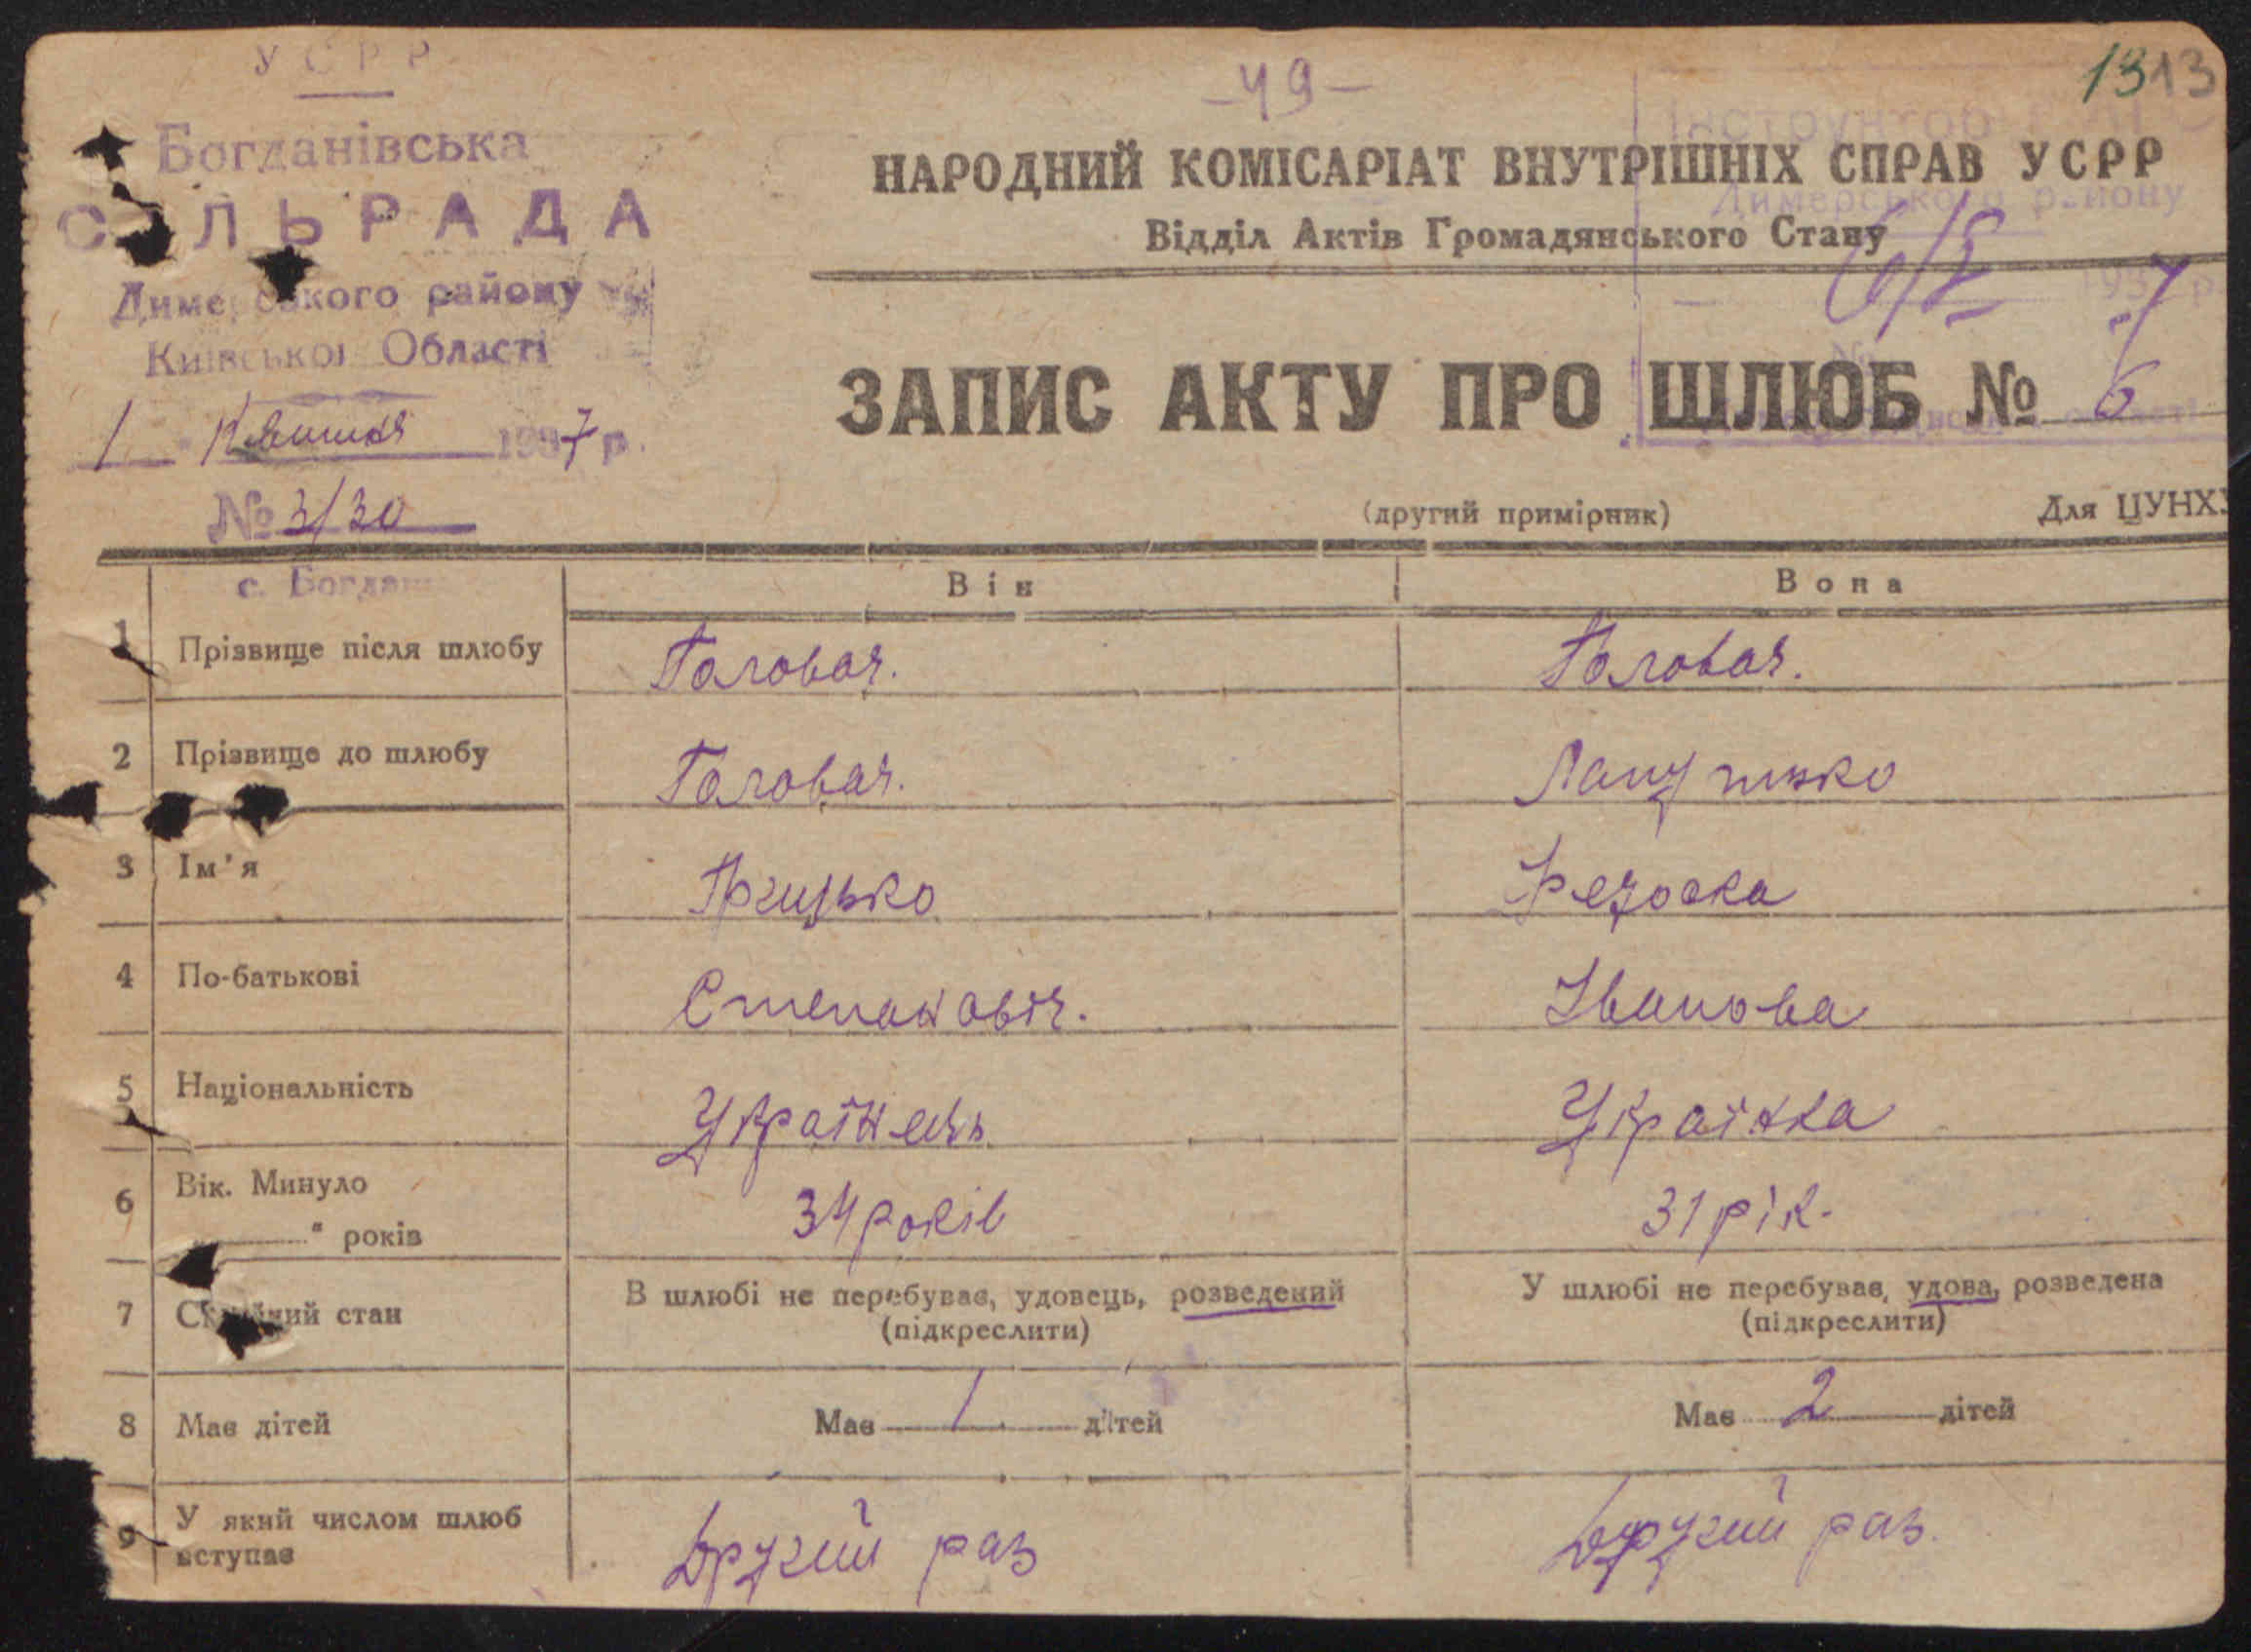 УСРР
-49-
13 13
Богданівська
СІЛЬРАДА
Димерського району
Київської Області
1 Квітня 1937 р.
№ 3/30
с. Богдан
Інструктор
Димерського району
6/5 1937 р.
НАРОДНИЙ КОМІСАРІАТ ВНУТРІШНІХ СПРАВ УСРР
Відділ Актів Громадянського Стану
ЗАПИС АКТУ ПРО ШЛЮБ № 6
(другий примірник) Для ЦУНХУ
Він Вона
1 Прізвище після шлюбу Головач. Головач.
2 Прізвище до шлюбу Головач. Лапутько
3 Ім'я Грицько Федоска
4 По-батькові Степановіч. Іванова
5 Національність Українець Українка
6 Вік. Минуло
" років 34 років 31 рік.
7 Сімейний стан В шлюбі не перебуває, удовець, розведений У шлюбі не перебуває, удова, розведена
(підкреслити) (підкреслити)
8 Має дітей Має 1 дітей Має 2 дітей
9 У який числом шлюб
вступає Другий раз Другий раз.